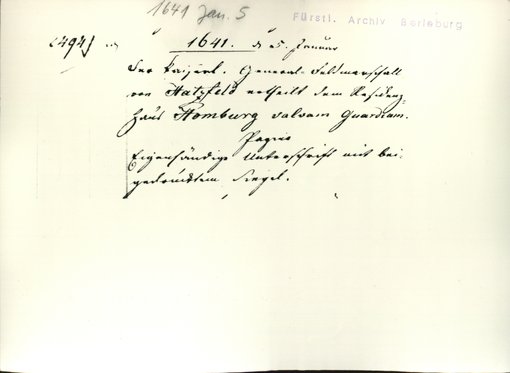 1641 Jan. 5
Fürstl. Archiv Berleburg
(494)
1641. d 5. Januar
Der Kaiserl. General-Feldmarschall
von Hatzfeld ertheilt dem Residenz-
haus Homburg salvam Guardiam.
Papier
Eigenhändige Unterschrift mit bei-
gedrücktem Siegel.